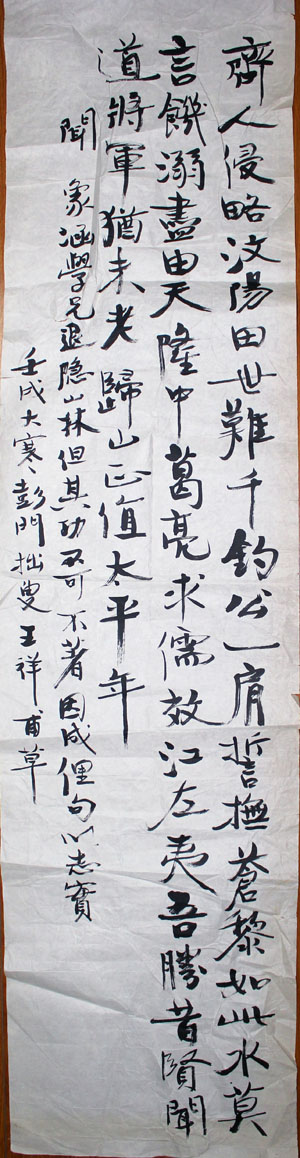 齊人侵略汶陽田世難千鈞公一肩誓撫蒼黎如此水莫
言饑溺盡由天隆中葛亮求儒效江左夷吾勝昔賢聞
道將軍猶未老歸山正值太平年
聞象涵學兄退隐山林但其功不可不著因成俚句以志實
壬戌大寒彭門拙叟王祥甫草